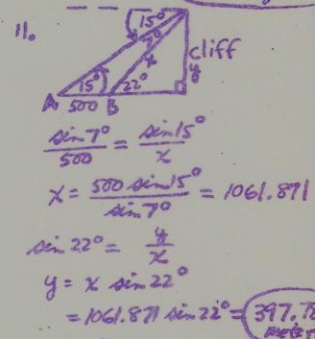 11.
15°
7°
x
cliff
y
15°
22°
A 500 B
sin 7° / 500 = sin 15° / x
x = 500 sin 15° / sin 7° = 1061.871
sin 22° = y / x
y = x sin 22°
= 1061.871 sin 22° = 397.78
meters